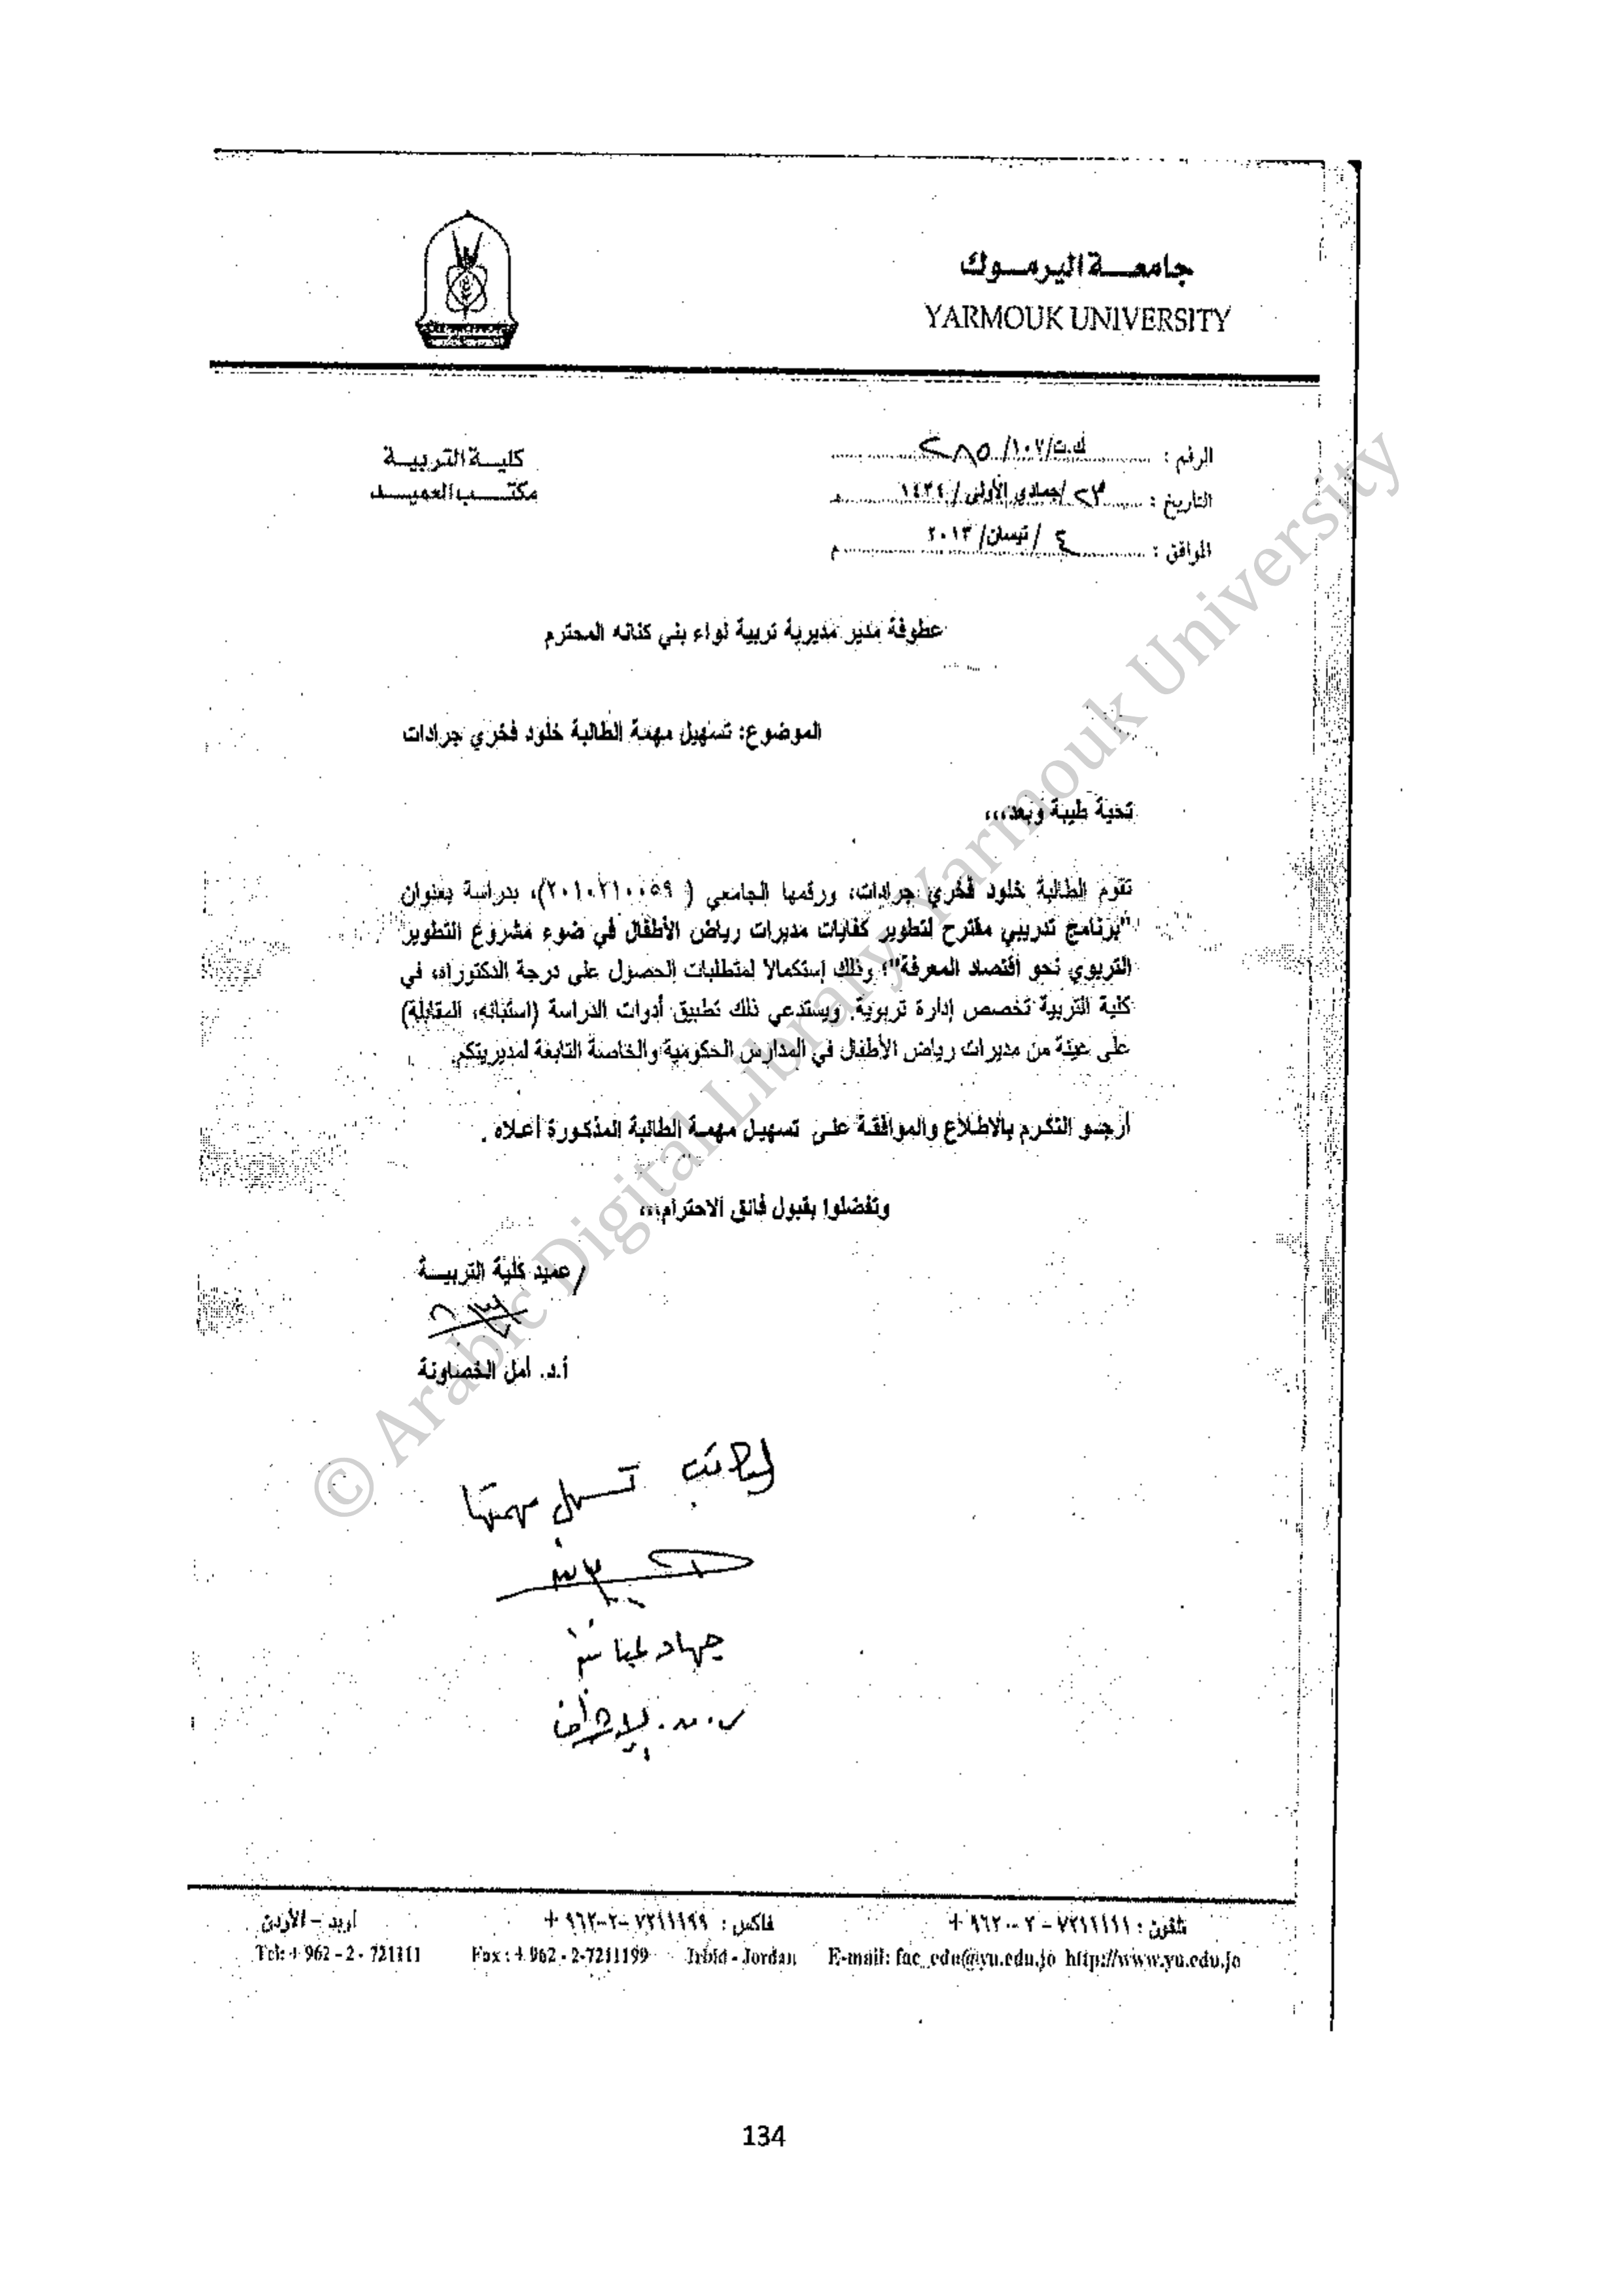 جامعــة اليرمــوك
YARMOUK UNIVERSITY
كليــة التربيــة
مكتــب العميــد
الرقم : ك.ت/١٠٧/٢٨٥
التاريخ : ٢٣/جمادى الأولى/١٤٣٤هـ
الموافق : ٤ /نيسان/٢٠١٣ م
عطوفة مدير مديرية تربية لواء بني كنانه المحترم
الموضوع: تسهيل مهمة الطالبة خلود فخري جرادات
تحية طيبة وبعد،،،
تقوم الطالبة خلود فخري جرادات، ورقمها الجامعي (٢٠١٠٢١٠٠٥٩)، بدراسة بعنوان
"برنامج تدريبي مقترح لتطوير كفايات مديرات رياض الأطفال في ضوء مشروع التطوير
التربوي نحو اقتصاد المعرفة"، وذلك إستكمالا لمتطلبات الحصول على درجة الدكتوراه، في
كلية التربية تخصص إدارة تربوية. ويستدعي ذلك تطبيق أدوات الدراسة (استبانه، المقابلة)
على عينة من مديرات رياض الأطفال في المدارس الحكومية والخاصة التابعة لمديريتكم.
أرجو التكرم بالاطلاع والموافقة على تسهيل مهمة الطالبة المذكورة أعلاه .
وتفضلوا بقبول فائق الاحترام،،،
/عميد كلية التربيــة
أ.د. أمل الخصاونة
تسهيل مهمتها
جهاد
تلفون : ٧٢١١١١١ – ٢ – ٩٦٢ + فاكس : ٧٢١١١٩٩ –٢–٩٦٢ + اربد – الأردن
Tel: + 962 – 2 - 721111 Fax : + 962 - 2-7211199 Irbid - Jordan E-mail: fac_edu@yu.edu.jo http://www.yu.edu.jo
© Arabic Digital Library-Yarmouk University
134